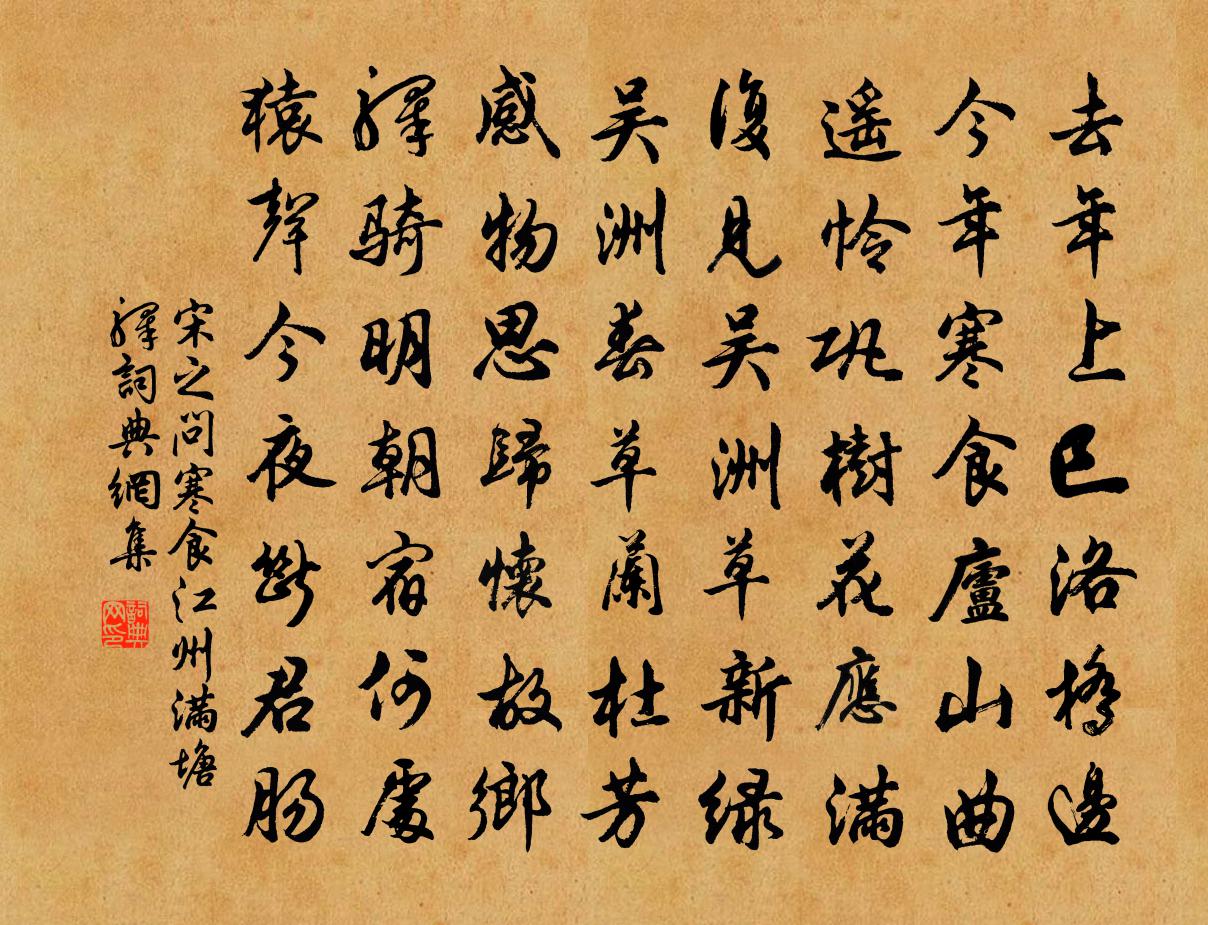 去年上巳洛橋邊
今年寒食廬山曲
遥怜巩樹花應滿
復見吴洲草新緑
吴洲春草蘭杜芳
感物思歸懷故鄉
驛騎明朝宿何處
猿聲今夜斷君腸
宋之問寒食江州滿塘
驛詞典網集
詞典
网印